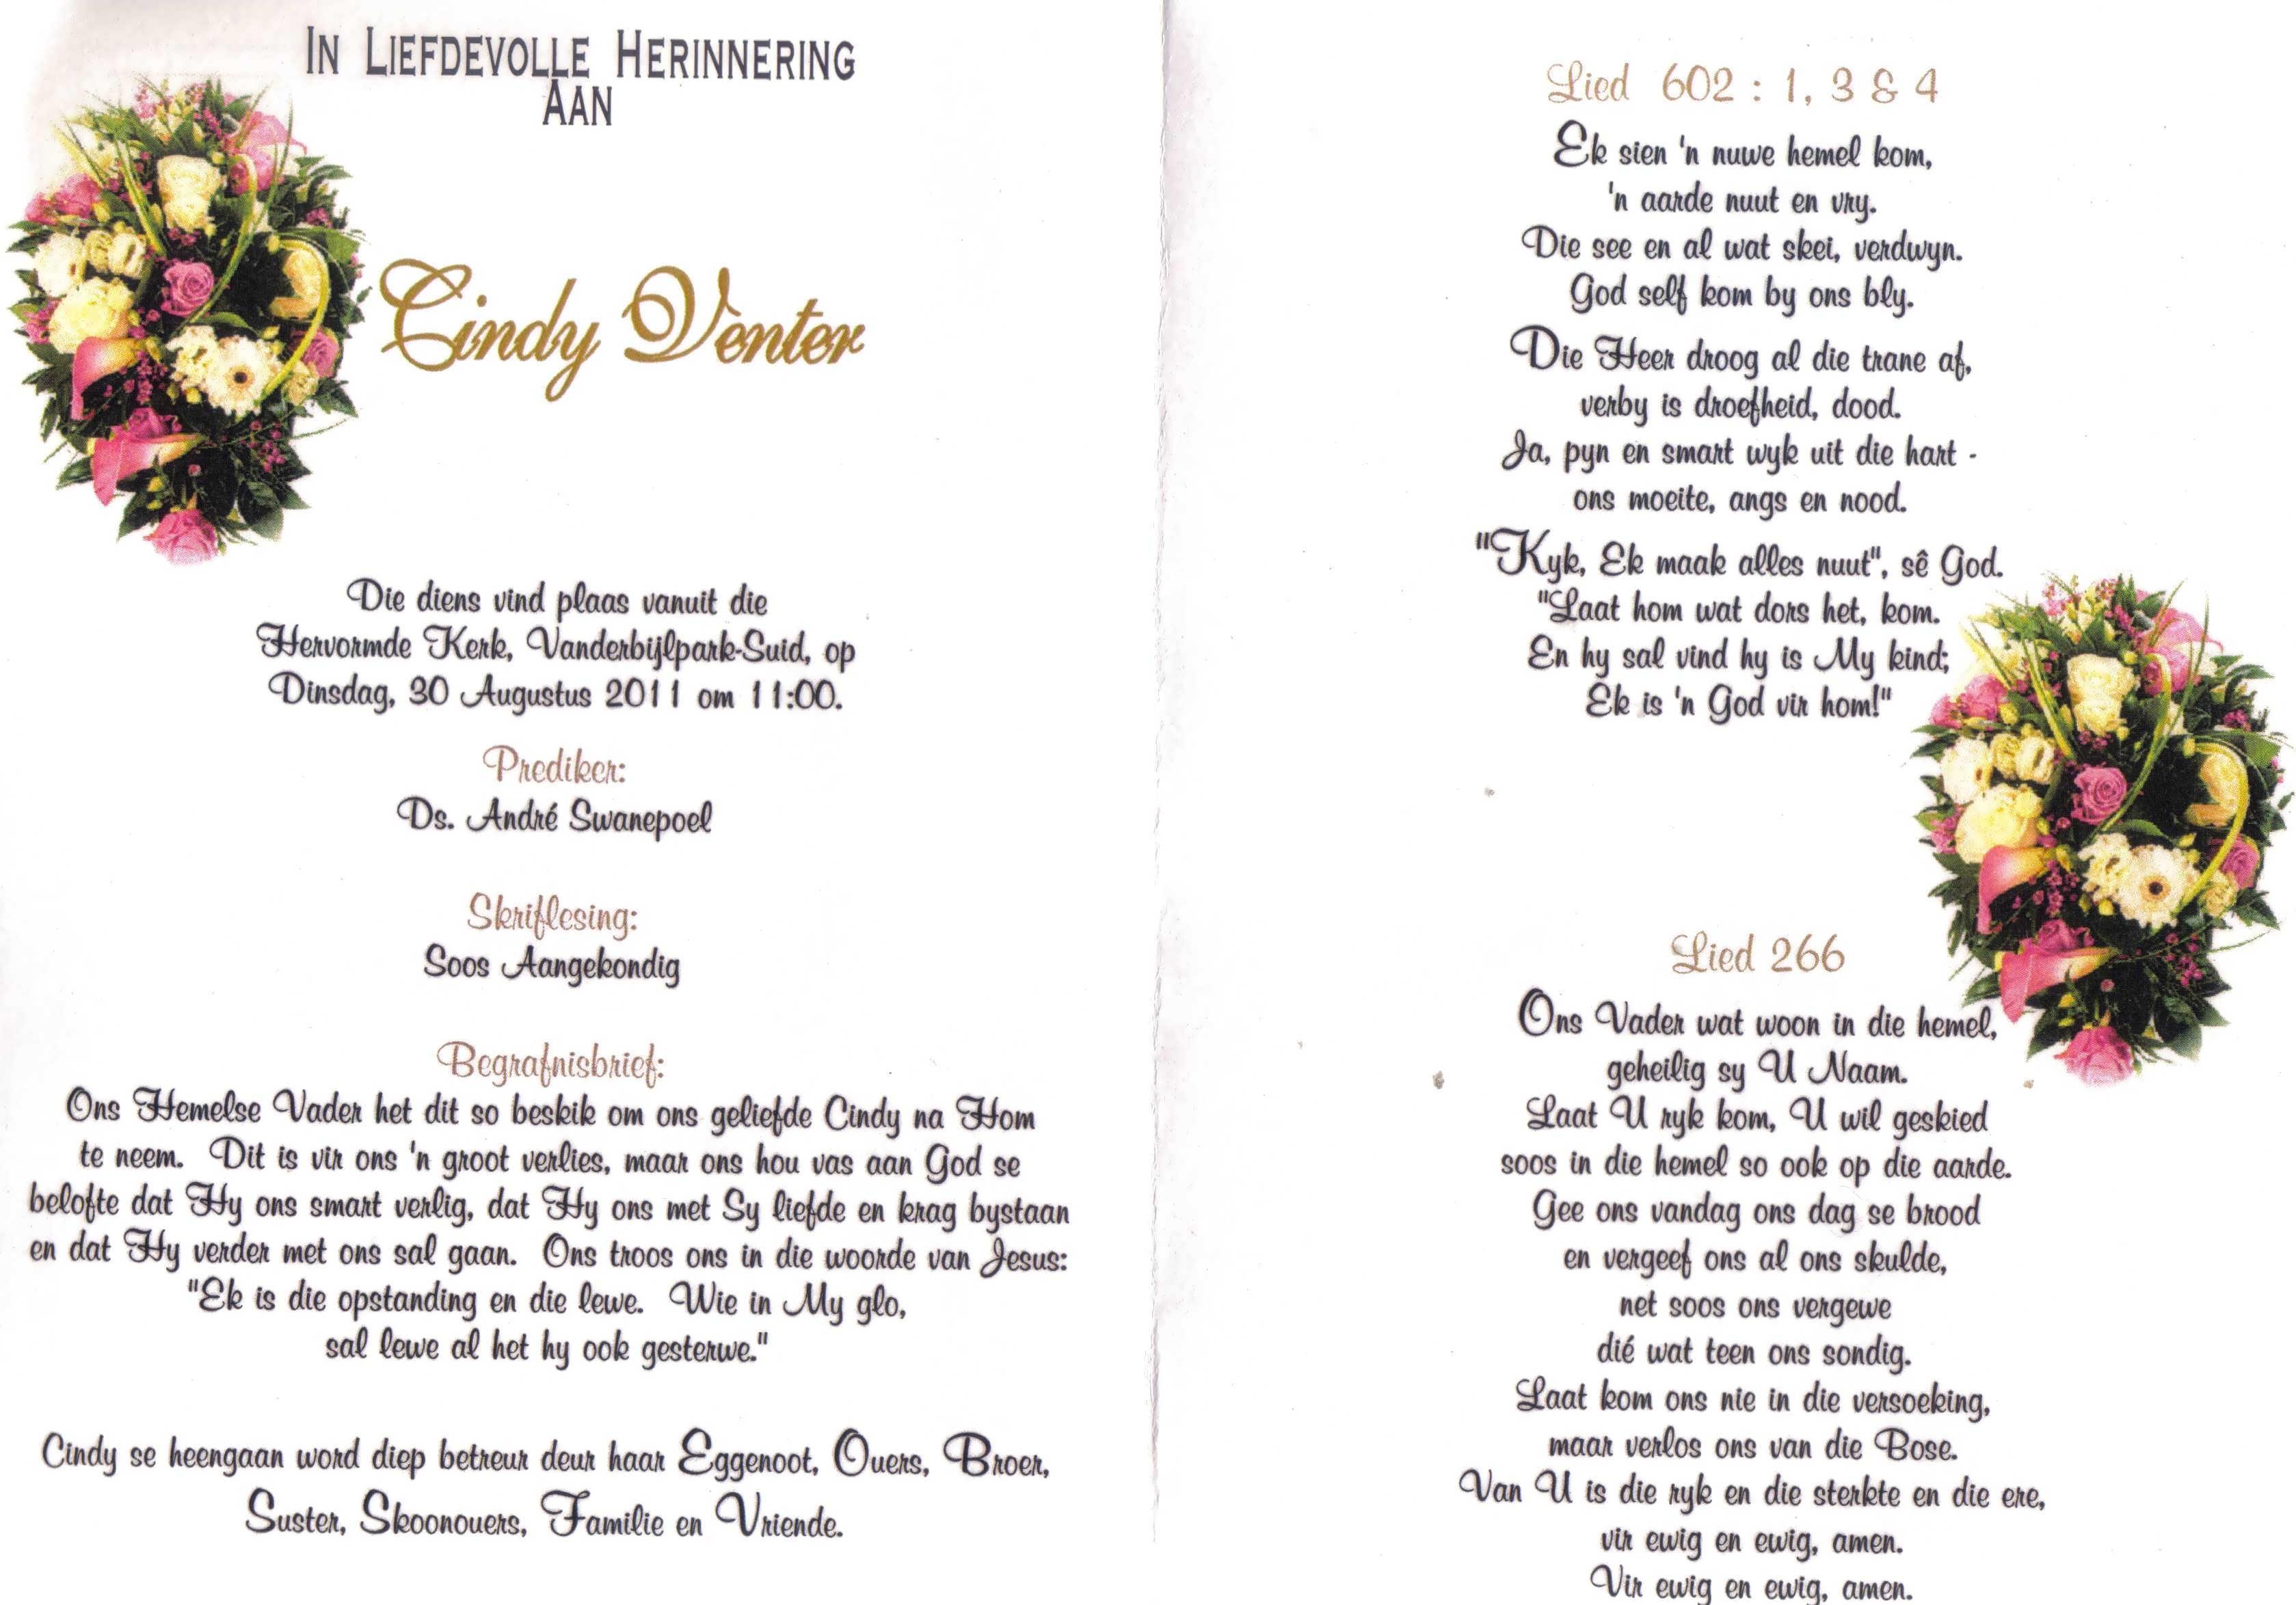 In Liefdevolle Herinnering
Aan
Cindy Venter
Die diens vind plaas vanuit die
Hervormde Kerk, Vanderbijlpark-Suid, op
Dinsdag, 30 Augustus 2011 om 11:00.
Prediker:
Ds. André Swanepoel
Skriflesing:
Soos Aangekondig
Begrafnisbrief:
Ons Hemelse Vader het dit so beskik om ons geliefde Cindy na Hom
te neem. Dit is vir ons 'n groot verlies, maar ons hou vas aan God se
belofte dat Hy ons smart verlig, dat Hy ons met Sy liefde en krag bystaan
en dat Hy verder met ons sal gaan. Ons troos ons in die woorde van Jesus:
"Ek is die opstanding en die lewe. Wie in My glo,
sal lewe al het hy ook gesterwe."
Cindy se heengaan word diep betreur deur haar Eggenoot, Ouers, Broer,
Suster, Skoonouers, Familie en Vriende.
Lied 602 : 1, 3 & 4
Ek sien 'n nuwe hemel kom,
'n aarde nuut en vry.
Die see en al wat skei, verdwyn.
God self kom by ons bly.
Die Heer droog al die trane af,
verby is droefheid, dood.
Ja, pyn en smart wyk uit die hart -
ons moeite, angs en nood.
"Kyk, Ek maak alles nuut", sê God.
"Laat hom wat dors het, kom.
En hy sal vind hy is My kind;
Ek is 'n God vir hom!"
Lied 266
Ons Vader wat woon in die hemel,
geheilig sy U Naam.
Laat U ryk kom, U wil geskied
soos in die hemel so ook op die aarde.
Gee ons vandag ons dag se brood
en vergeef ons al ons skulde,
net soos ons vergewe
dié wat teen ons sondig.
Laat kom ons nie in die versoeking,
maar verlos ons van die Bose.
Van U is die ryk en die sterkte en die ere,
vir ewig en ewig, amen.
Vir ewig en ewig, amen.